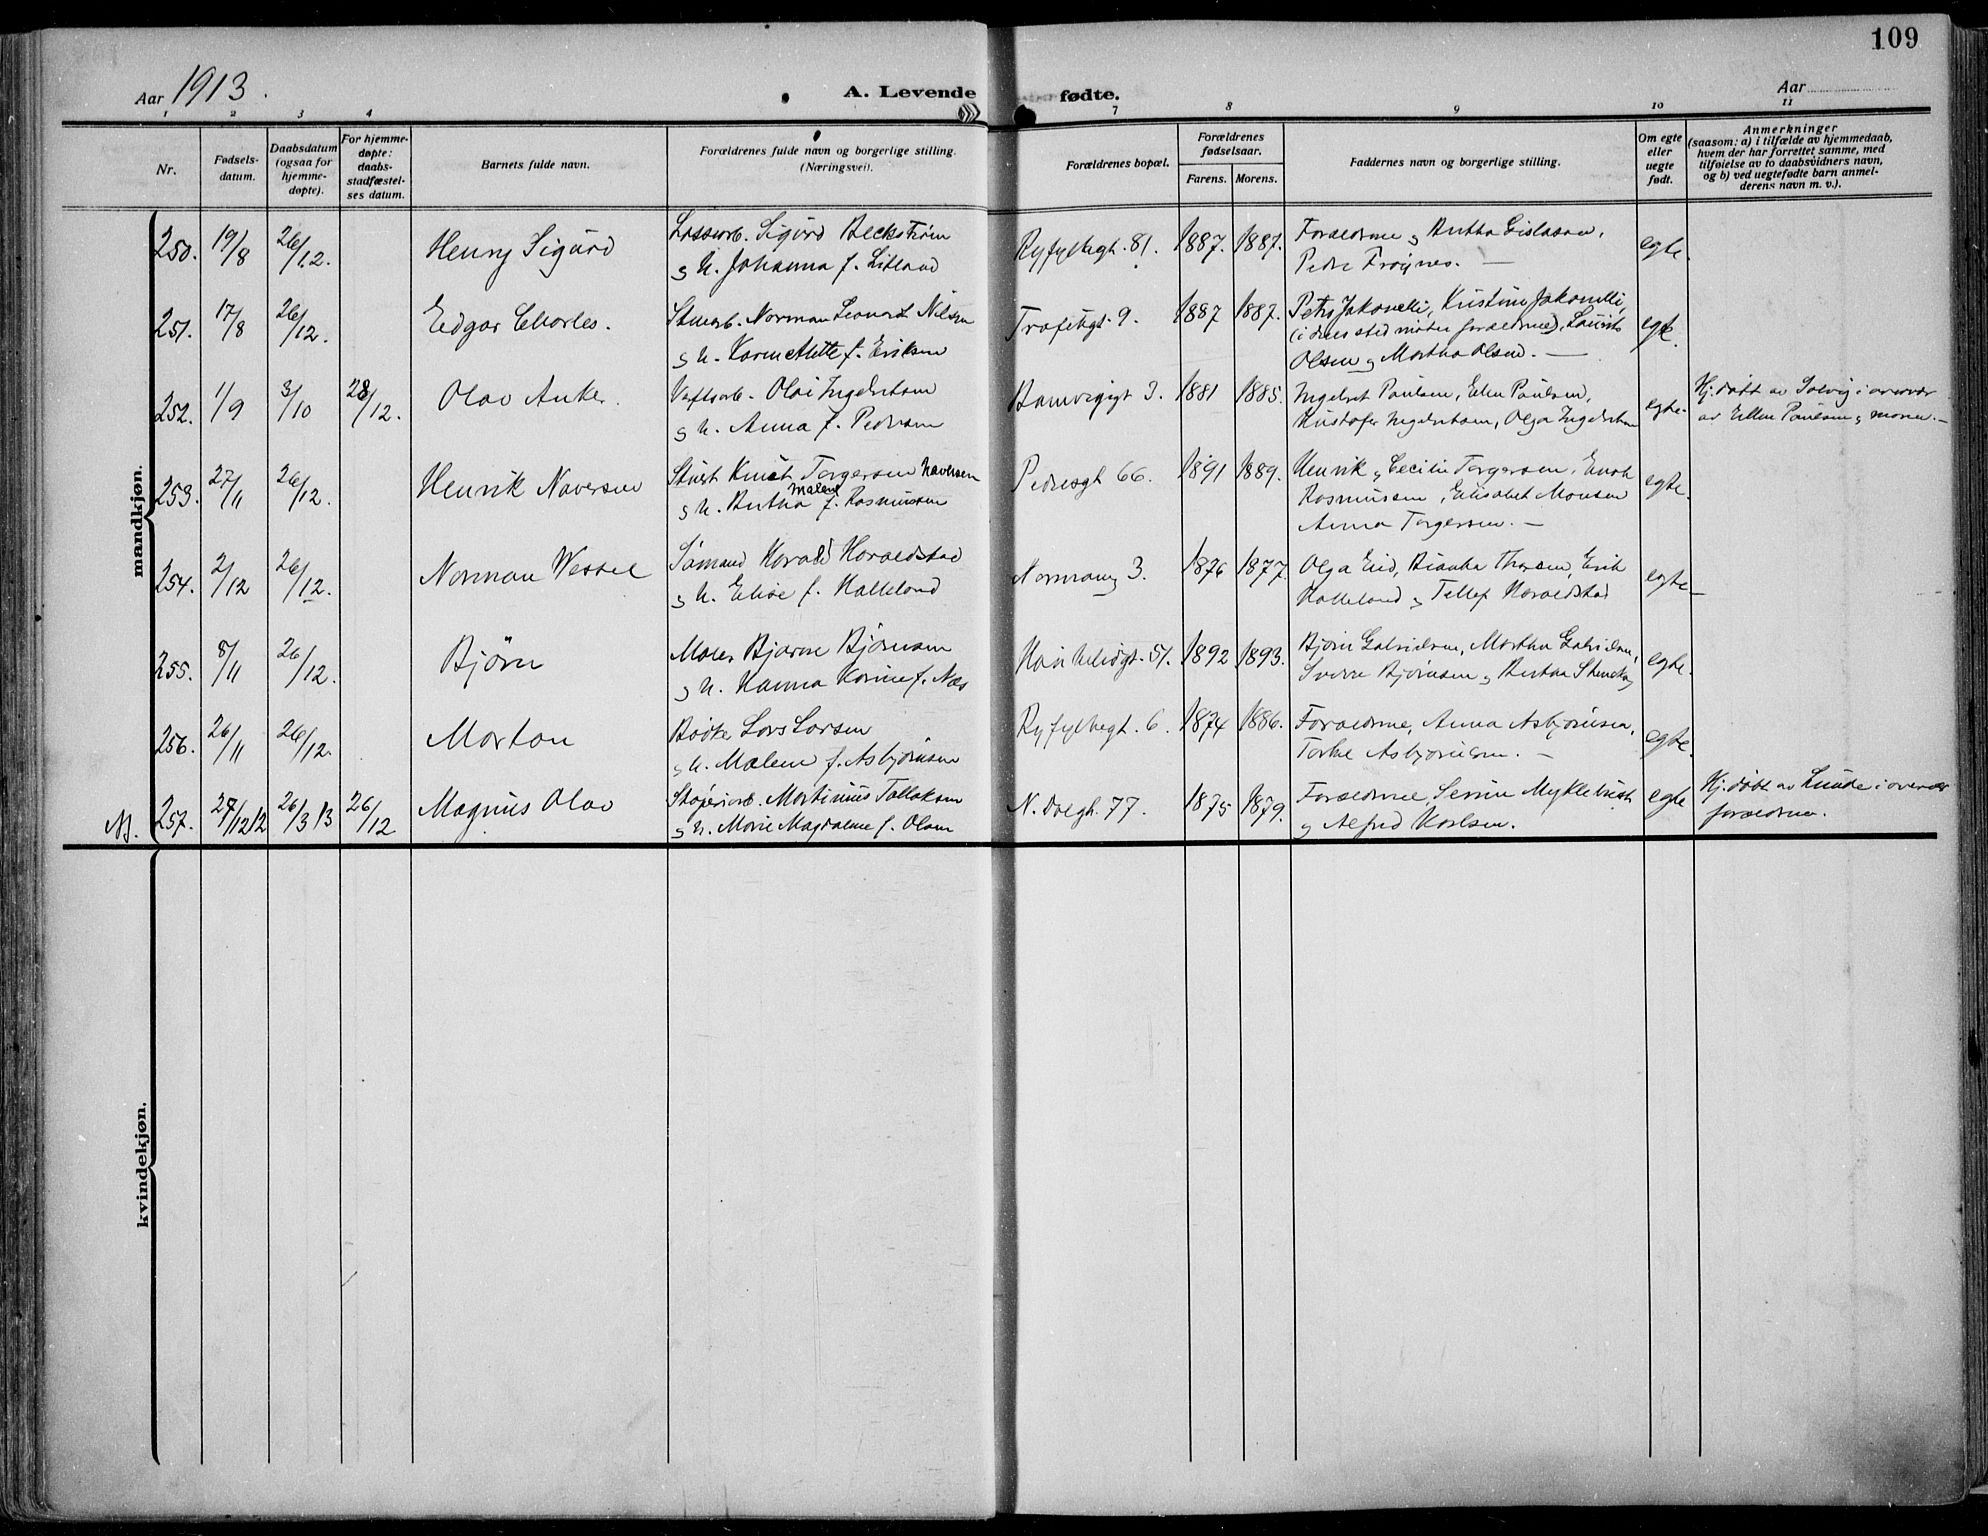 109
Aar 1913.
A. Levende fødte.
Aar
1 2 3 4 7 8 9 10 11
Nr.
Fødsels-
datum.
Daabsdatum
(ogsaa for
hjemme-
døpte).
For hjemme-
døpte:
daabs-
stadfæstel-
ses datum.
Barnets fulde navn.
Forældrenes fulde navn og borgerlige stilling.
(Næringsvei).
Forældrenes bopæl.
Forældrenes
fødselsaar.
Farens. Morens.
Faddernes navn og borgerlige stilling.
Om egte
eller
uegte
født.
Anmerkninger
(saasom: a) i tilfælde av hjemmedaab,
hvem der har forrettet samme, med
tilføielse av to daabsvidners navn,
og b) ved uegtefødte barn anmel-
derens navn m. v.).
mandkjøn.
250. 19/8 26/12. Henry Sigurd
Lossearb. Sigurd Beckstrøm
& h. Johanna f. Litland
Ryfylkegt. 81. 1887. 1887.
Forældrene & Bertha Gislason,
Pedre Frøynes. —
egte.
251. 17/8 26/12. Edgar Charles.
Stuerarb. Norman Leonard Nilsen
& h. Karen Mette f. Eriksen
9. 1887 1887.
Olsen & Martha Olsen. —
egte.
252. 1/9 3/10 28/12. Olav Anker
Verftsarb. Olai Ingebretsen
& h. Anna f. Pedersen
3. 1881 1885.
Ingebret Paulsen, Ellen Paulsen,
Kristofer Ingebretsen, Olga Ingebretsen
egte.
Hj. døbt av Solvig i overvær
av Ellen Paulsen & moren. —
253. 27/11 26/12. Henrik Naversen
Stuert Knut Torgersen Naversen
& h. Bertha Malene f. Rasmussen
Pedersgt 66. 1891 1889.
Henrik & Cecilie Torgersen, Enok
Rasmussen, Elisabet Monsen
Anna Torgersen. —
egte.
254. 2/12 26/12. Norman Wessel
Sømand Harald Haraldstad
& h. Elise f. Halleland
3. 1876 1877.
Olga Eid, Bianka Thorsen, Erik
Halleland & Tellef Haraldstad
egte. —
255. 8/11 26/12. Bjørn
Maler Bjarne Bjørnsen
& h. Hanna Karine f. Næs
51. 1892 1893.
Bjørn Gabrielsen, Martha Gabrielsen,
Sverre Bjørnsen & Bertha
egte.
256. 26/11 26/12. Morton
Bødker Lars Larsen
& h. Malene f. Asbjørnsen
Ryfylkegt. 6. 1874 1886.
Forældrene, Anna Asbjørnsen,
Asbjørnsen. —
egte.
257. 27/12 12 26/3 13 26/12 Magnus Olav
Martinius Tollaksen
& h. Marie Magdalene f. Olsen
N. Dalegt. 77. 1875 1879.
Forældrene, Serine Myklebust
& Alfred Karlsen.
egte
Hj. døbt av Lunde i overvær
forældrene.
kvindekjøn.